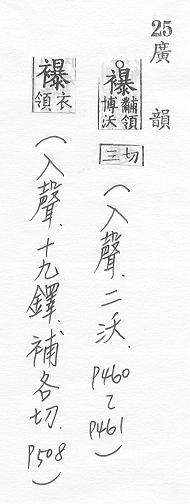 25 廣韻
襮 黼領 博沃 三切 (入聲.二沃. P460 P461)
襮 衣領 (入聲.十九鐸.補各切. P508)